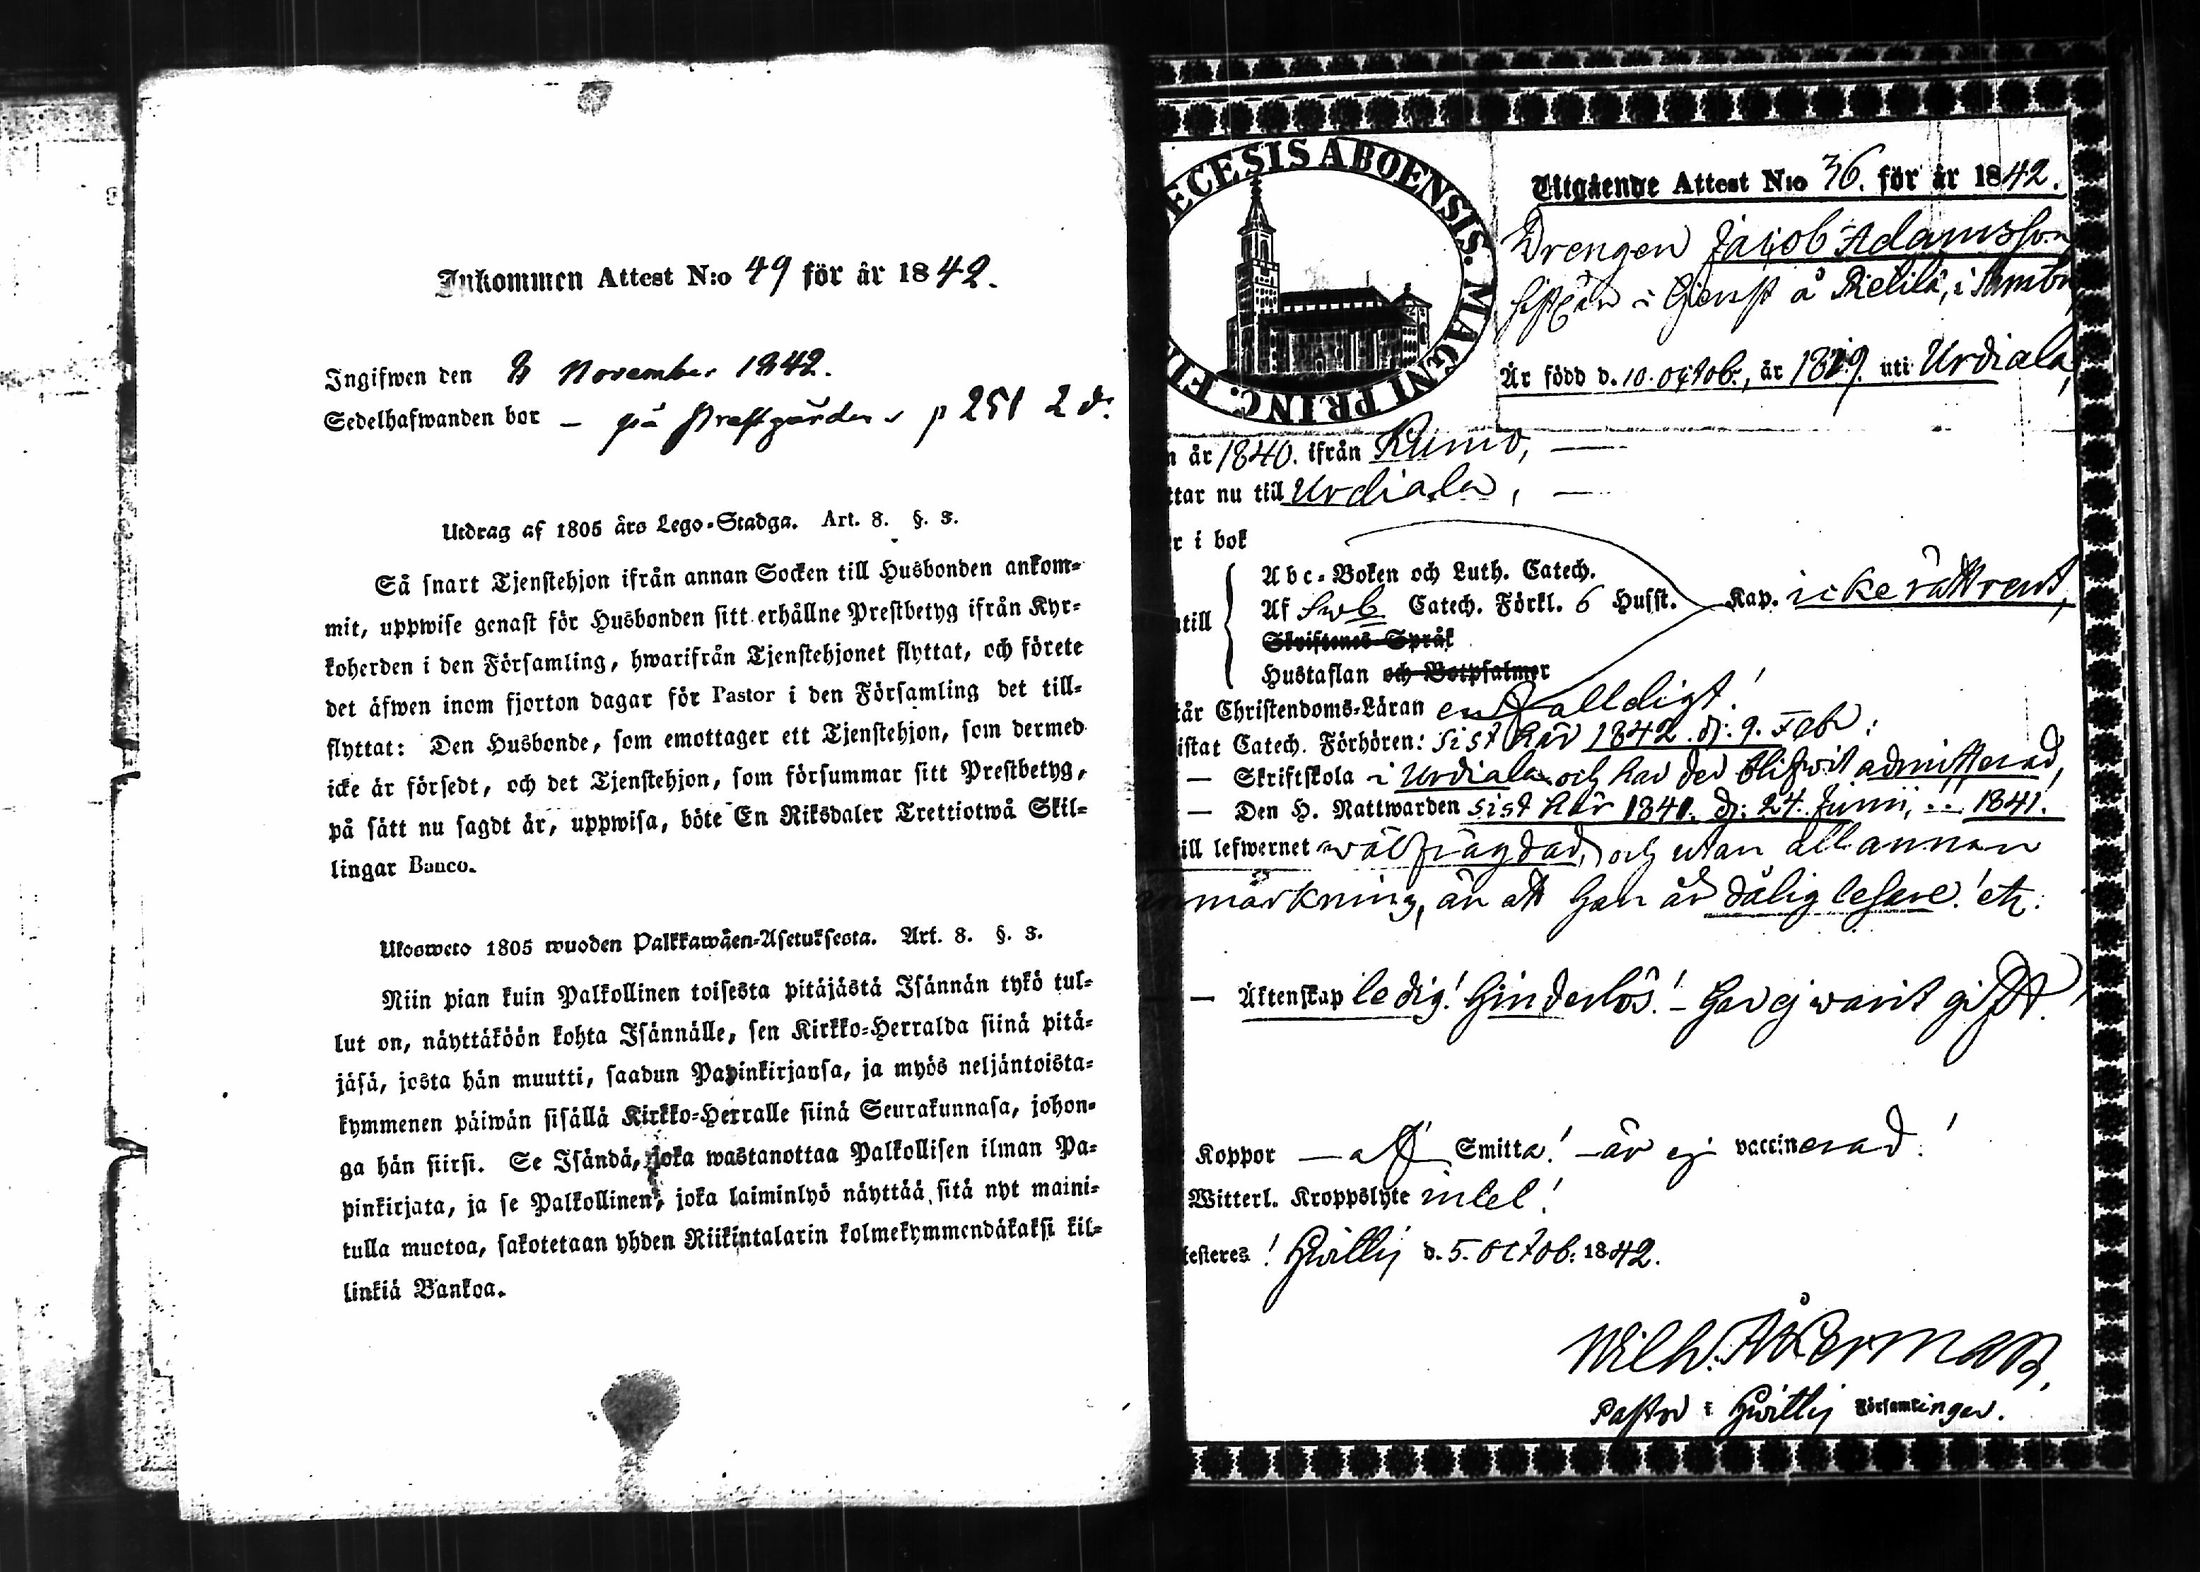 Inkommen Attest N:o 49 för år 1842.
Ingifwen den 8 November 1842.
Sedelhafwanden bor – på Prestgården p 251 2 d:
Utdrag af 1805 års Lego-Stadga. Art. 8. §. 3.
Så snart Tjenstehjon ifrån annan Socken till Husbonden ankom-
mit, uppwise genast för Husbonden sitt erhållne Prestbetyg ifrån Kyr-
koherden i den Församling, hwarifrån Tjenstehjonet flyttat, och förete
det äfwen inom fjorton dagar för Pastor i den Församling det till-
flyttat: Den Husbonde, som emottager ett Tjenstehjon, som dermed
icke är försedt, och det Tjenstehjon, som försummar sitt Prestbetyg,
på sätt nu sagdt är, uppwisa, böte En Riksdaler Trettiotwå Skil-
lingar Banco.
Ulosweto 1805 wuoden Palkkawäen-Asetuksesta. Art. 8. §. 3.
Niin pian kuin Palkollinen toisesta pitäjästä Isännän tykö tul-
lut on, näyttäköön kohta Isännälle, sen Kirkko-Herralda siinä pitä-
jäsä, josta hän muutti, saadun Papinkirjansa, ja myös neljäntoista-
kymmenen päiwän sisällä Kirkko-Herralle siinä Seurakunnasa, johon-
ga hän siirsi. Se Isändä, joka wastanottaa Palkollisen ilman Pa-
pinkirjata, ja se Palkollinen, joka laiminlyö näyttää sitä nyt maini-
tulla muotoa, sakotetaan yhden Riikintalarin kolmekymmendäkaksi kil-
linkiä Bankoa.
ECESIS ABOENSIS. MAGNI PRINC. FI
Utgående Attest N:o 36. för år 1842.
Drengen Jacob Adamsson
i tjenst å Pietilä, i
Är född d. 10. octob:, år 1819. uti Urdiala,
n år 1840. ifrån Kumo, —
ttar nu till Urdiala, —
r i bok
Abc-Boken och Luth. Catech.
till Af Swb Catech. Förkl. 6 Husst. Kap. icke rättrent,
Skriftenes Språk
Hustaflan och Botpsalmer
tår Christendoms-Läran enfalldigt!
istat Catech. Förhören: sist här 1842. d: 9. Feb:
— Skriftskola i Urdiala och har der blifwit admitterad,
— Den H. Nattwarden sist här 1841. d: 24. Junii, 1841.
ill lefwernet wälfrägdad, och utan all annan
anmärkning, än att han är dålig läsare! etc.
— Äktenskap ledig! hinderlös! – har ej warit gift!
Koppor — af Smitta! – är ej vaccinerad!
Witterl. Kroppslyte intet!
testeres! Hwittis d. 5. octob: 1842.
Wilh. Åkerman,
Pastor i Hwittis Församlingar.